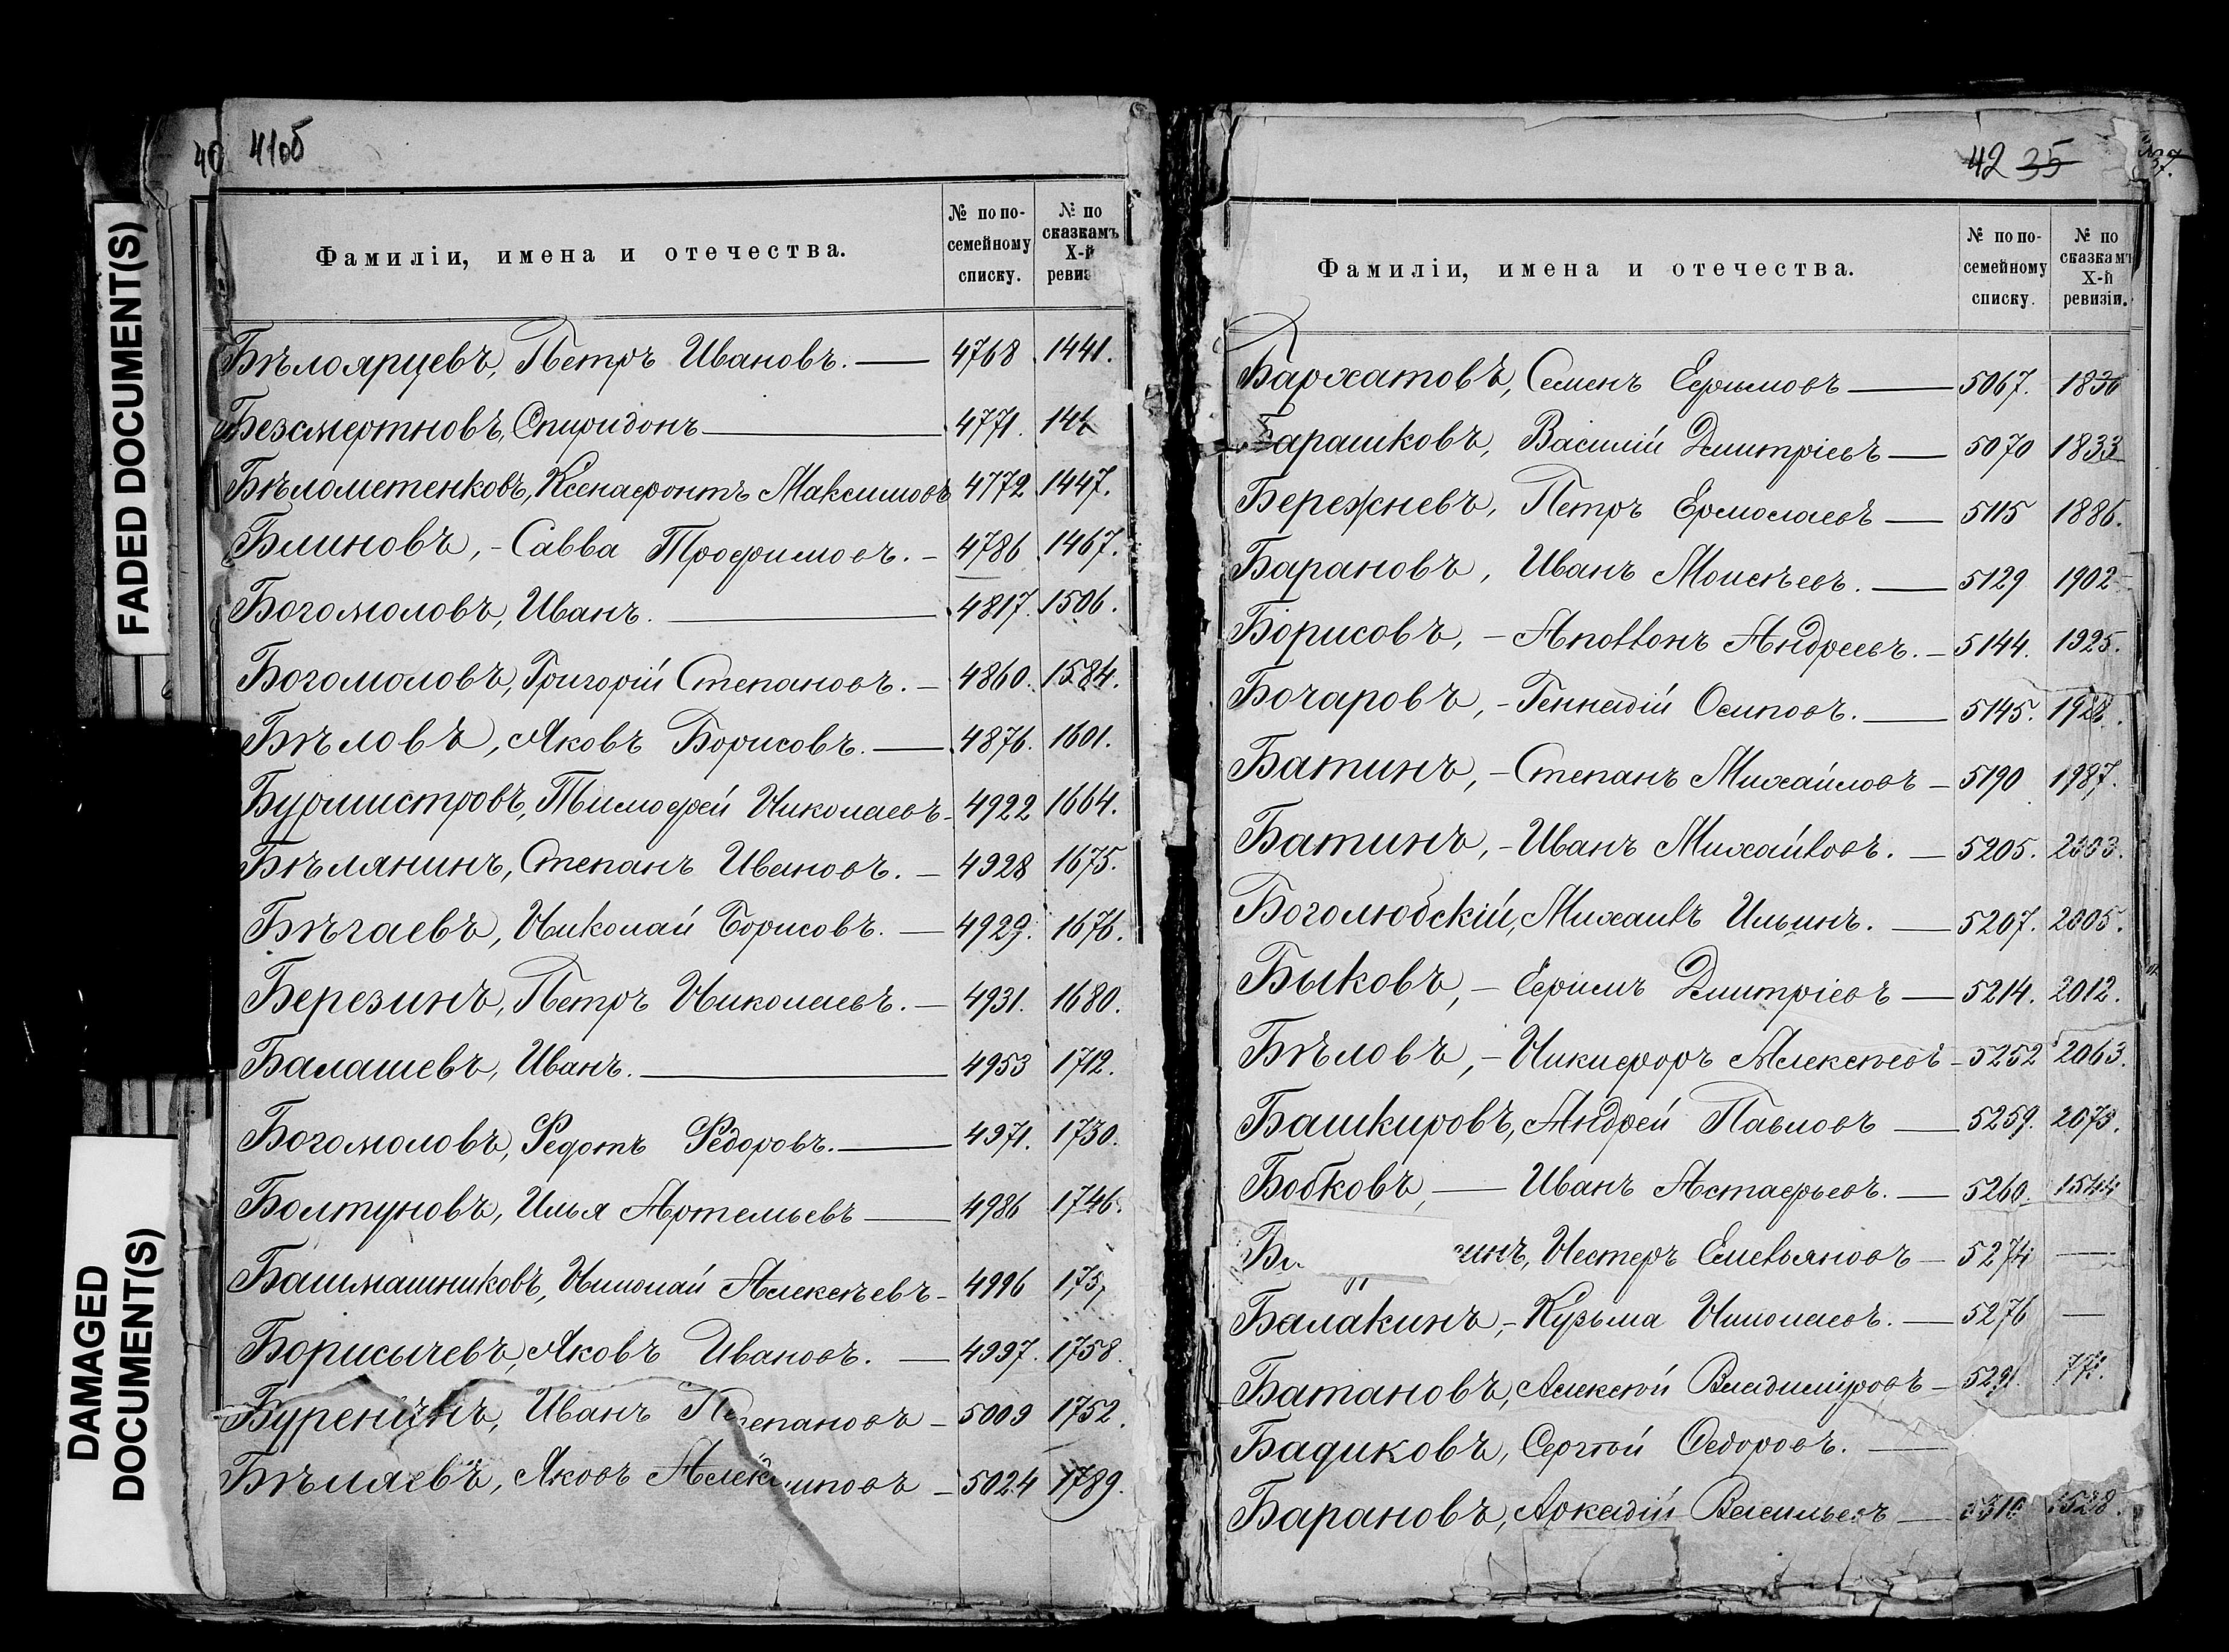 FADED DOCUMENT(S)
DAMAGED
DOCUMENT(S)
40 41об
Фамиліи, имена и отечества.
№ по по-
семейному
списку.
№ по
сказкамъ
X-й
ревиз
Бѣлоярцевъ, Петръ Ивановъ. — 4768 1441.
Безсмертновъ, Спиридонъ — 4771. 144
Бѣлометенковъ, Ксенафонтъ Максимовъ 4772 1447.
Блиновъ, - Савва Трофимовъ. - 4786 1467.
Богомоловъ, Иванъ. — 4817. 1506.
Богомоловъ, Григорій Степановъ. - 4860. 1584.
Бѣловъ, Яковъ Борисовъ. — 4876. 1601.
Бурмистровъ, Тимофей Николаевъ - 4922 1664.
Бѣлянинъ, Степанъ Ивановъ. - 4928 1675.
Бѣгаевъ, Николай Борисовъ. — 4929. 1676.
Березинъ, Петръ Николаевъ. - 4931. 1680.
Балашевъ, Иванъ. — 4953 1712.
Богомоловъ, Федотъ Федоровъ. — 4971. 1730.
Болтуновъ, Илья Артемьевъ — 4986 1746.
Башмашниковъ, Николай Алексѣевъ - 4996 175
Борисычевъ, Яковъ Ивановъ. — 4997. 1758.
Буренинъ, Иванъ Степановъ - 5009 1752.
Бѣляевъ, Яковъ - 5024 1789.
42 35
Фамиліи, имена и отечества.
№ по по-
семейному
списку.
№ по
сказкамъ
X-й
ревизіи.
Бархатовъ, Семенъ Ефимовъ — 5067. 1830
Барашковъ, Василій Дмитріевъ — 5070 1833
Бережневъ, Петръ Ермолаевъ — 5115 1886.
Барановъ, Иванъ Моисѣевъ. — 5129 1902
Борисовъ, - Аполлонъ Андреевъ. - 5144. 1925.
Бочаровъ, - Геннадій Осиповъ. — 5145. 1928.
Батинъ, - Степанъ Михайловъ - 5190 1987.
Батинъ, - Иванъ Михайловъ. — 5205. 2003.
Боголюбскій, Михаилъ Ильинъ. — 5207. 2005.
Быковъ, - Ефимъ Дмитріевъ — 5214. 2012.
Бѣловъ, - Никифоръ Алексѣевъ - 5252 2063.
Башкировъ, Андрей Павловъ — 5259. 2073.
Бобковъ, — Иванъ Астафьевъ. — 5260. 1544
синъ, Нестеръ Емельяновъ - 5274 —
Балакинъ, - Кузьма Николаевъ. — 5276 —
Батановъ, Алексѣй Владиміровъ - 5291.
Бадиковъ, Сергѣй Федоровъ. —
Барановъ, Аркадій Васильевъ — 5310 1528.